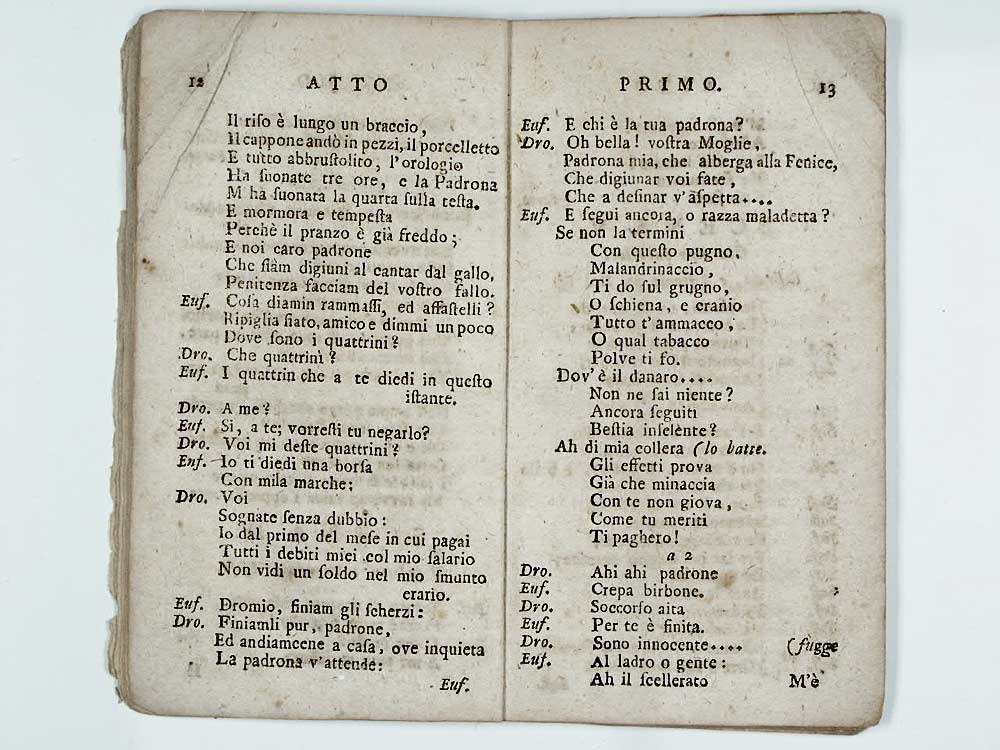 12 ATTO
Il riſo è lungo un braccio,
Il cappone andò in pezzi, il porcelletto
E tutto abbruſtolito, l'orologio
Ha ſuonate tre ore, e la Padrona
M ha ſuonata la quarta ſulla teſta.
E mormora e tempeſta
Perchè il pranzo è già freddo;
E noi caro padrone
Che ſiàm digiuni al cantar dal gallo,
Penitenza facciam del voſtro fallo.
Euf. Coſa diamin rammaſſi, ed affaſtelli?
Ripiglia fiato, amico e dimmi un poco
Dove ſono i quattrini?
Dro. Che quattrini?
Euf. I quattrin che a te diedi in queſto
iſtante.
Dro. A me?
Euf. Sì, a te; vorreſti tu negarlo?
Dro. Voi mi deſte quattrini?
Euf. Io ti diedi una borſa
Con mila marche;
Dro. Voi
Sognate ſenza dubbio:
Io dal primo del meſe in cui pagai
Tutti i debiti miei col mio ſalario
Non vidi un ſoldo nel mio ſmunto
erario.
Euf. Dromio, finiam gli ſcherzi:
Dro. Finiamli pur, padrone,
Ed andiamcene a caſa, ove inquieta
La padrona v'attende:
Euf.
PRIMO. 13
Euf. E chi è la tua padrona?
Dro. Oh bella! voſtra Moglie,
Padrona mia, che alberga alla Fenice,
Che digiunar voi fate,
Che a deſinar v'aſpetta....
Euf. E ſegui ancora, o razza maladetta?
Se non la termini
Con queſto pugno,
Malandrinaccio,
Ti do ſul grugno,
O ſchiena, e cranio
Tutto t'ammacco,
O qual tabacco
Polve ti fo.
Dov'è il danaro....
Non ne ſai niente?
Ancora ſeguiti
Beſtia inſelente?
Ah di mia collera (lo batte.
Gli effetti prova
Già che minaccia
Con te non giova,
Come tu meriti
Ti pagherò!
a 2
Dro. Ahi ahi padrone
Euf. Crepa birbone.
Dro. Soccorſo aita
Euf. Per te è finita.
Dro. Sono innocente.... (fugge
Euf. Al ladro o gente:
Ah il ſcellerato M'è